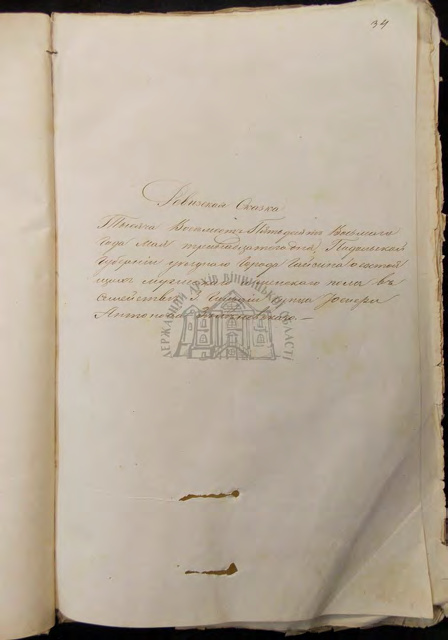 34
Ревизская Сказка
Тысяча Восемьсотъ Пятьдесятъ Восьмаго
года Мая тридцатого дня, Подольской
Губерніи уезднаго Города Гайсина о состоя
щихъ мужеска и женскаго пола въ
семействе 3 Гильдіи купца
Антонова
ДЕРЖАВНИЙ АРХІВ ВІННИЦЬКОЇ ОБЛАСТІ